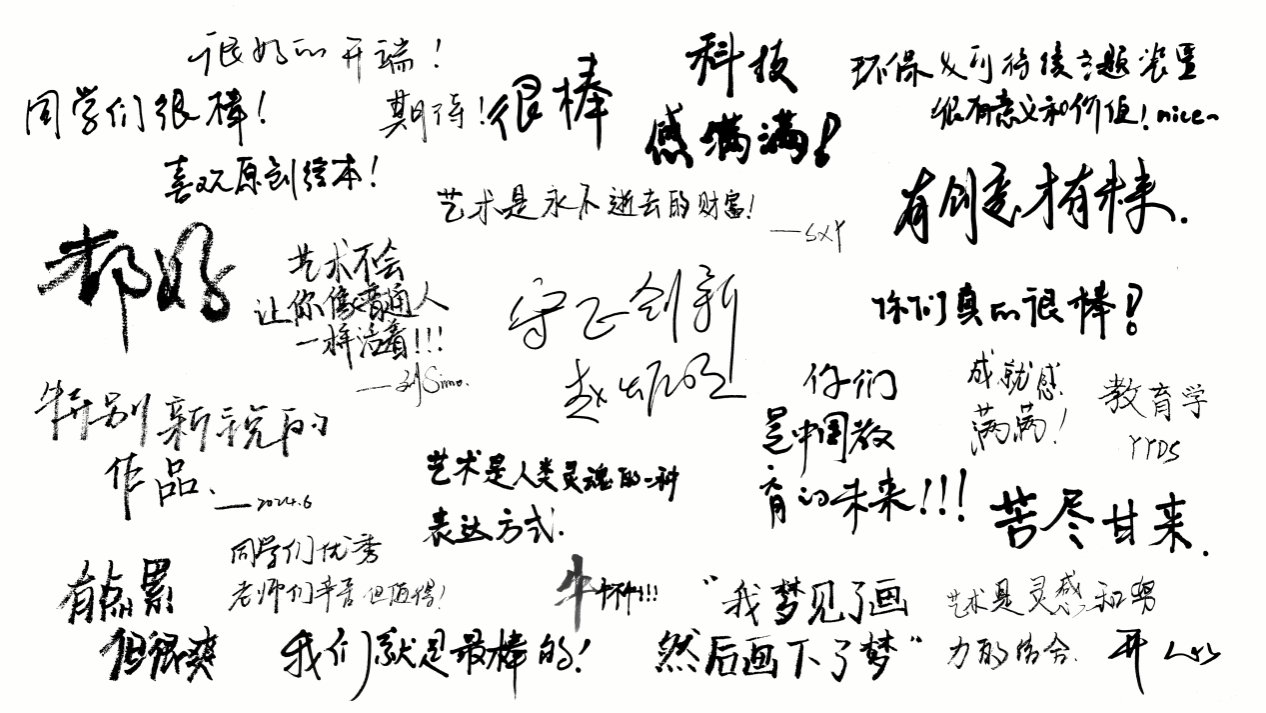 很好的开端！
期待！
同学们很棒！
很棒
科技
感满满！
环保及可持续主题装置
很有意义和价值！nice~
喜欢原创绘本！
艺术是永不逝去的财富！
——SXY
有创意才有未来.
都好
艺术不会
让你像普通人
一样活着!!!
——刘Simo.
守正创新
你们真的很棒！
特别新锐的
作品.
——2024.6
你们
是中国教
育的未来!!!
成就感
满满！
教育学
YYDS
艺术是人类灵魂的一种
表达方式.
苦尽甘来.
有点累
但很爽
同学们优秀
老师们辛苦但值得！
牛
我们就是最棒的！
“我梦见了画
然后画下了梦”
艺术是灵感和努
力的结合.